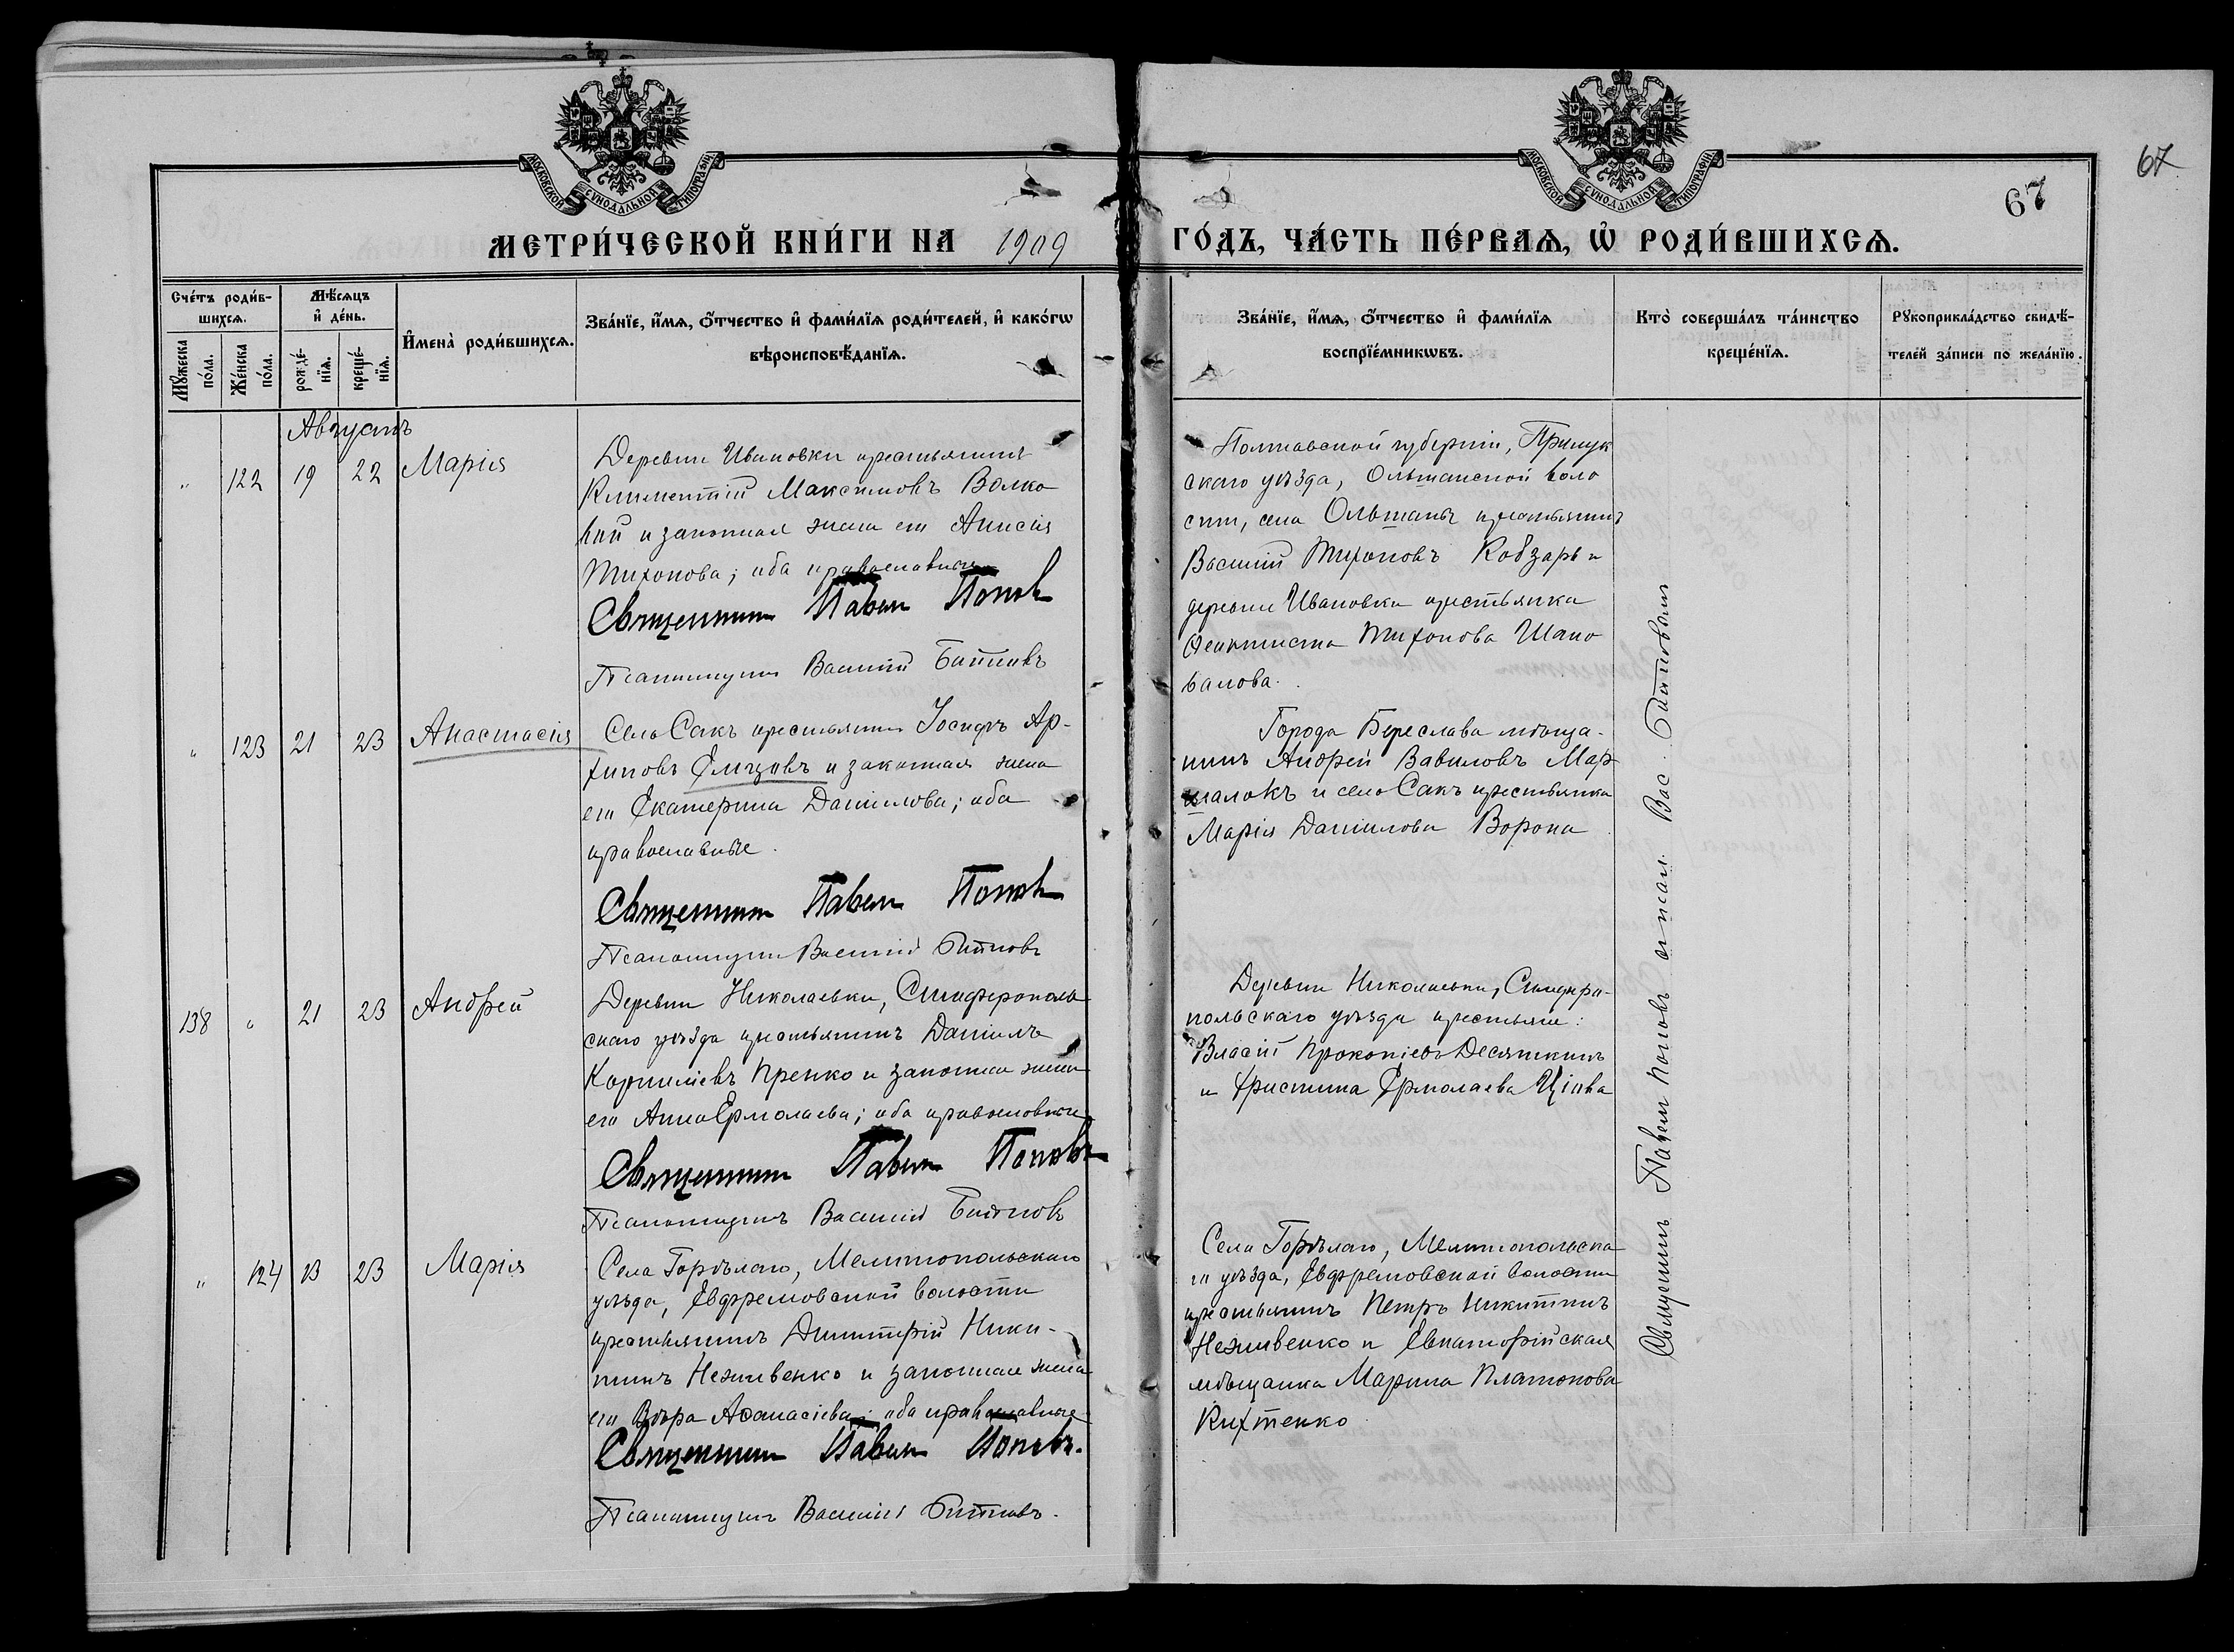 МОСКОВСКОЙ СѴНОДАЛЬНОЙ ТИПОГРАФІИ
МОСКОВСКОЙ СѴНОДАЛЬНОЙ ТИПОГРАФІИ
67
67
МЕТРИ́ЧЕСКОЙ КНИ́ГИ НА 1909 ГО́ДЪ, ЧА́СТЬ ПЕ́РВАѦ, Ѽ РОДИ́ВШИХСѦ.
Сче́тъ роди́в-
шихсѧ.
Мѣ́сѧцъ
и҆ де́нь.
Мꙋ́жеска
по́ла.
Же́нска
по́ла.
рожде́-
нїѧ.
креще́-
нїѧ.
И҆мена̀ роди́вшихсѧ.
Зва́нїе, и҆́мѧ, ѻ҆́тчество и҆ фами́лїѧ роди́телей, и҆ како́гѡ
вѣроисповѣ́данїѧ.
Зва́нїе, и҆́мѧ, ѻ҆́тчество и҆ фами́лїѧ
воспрїе́мникѡвъ.
Кто̀ соверша́лъ та́инство
креще́нїѧ.
Рꙋкоприкла́дство свидѣ́-
телей за́писи по жела́нїю.
Августъ
" 122 19 22 Марія
Деревни Ивановки крестьянинъ
Климентій Максимовъ Волко
вій и законная жена его Анисія
Тихонова; оба православные
Священникъ Павелъ Поповъ
Псаломщикъ Василій
Полтавской губерніи, Прилук
скаго уѣзда, Ольшанской воло
сти, села Ольшаны крестьянинъ
Василій Тихоновъ Кобзарь и
деревни Ивановки крестьянка
Феоктиста Тихонова Шапо
валова.
" 123 21 23 Анастасія
Село Сакъ крестьянинъ Іосифъ Ар-
хиповъ Ельцовъ и законная жена
его Екатерина Даніилова; оба
православные.
Священникъ Павелъ Поповъ
Псаломщикъ Василій
Города Береслава мѣща-
нинъ Андрей Вавиловъ Мар
шалокъ и село Сакъ крестьянка
Марія Даніилова Ворона
138 " 21 23 Андрей
Деревни Николаевки, Симферополь
скаго уѣзда крестьянинъ Даніилъ
Корниліевъ Пренко и законная жена
его Анна Ермолаева; оба православные
Священникъ Павелъ Поповъ
Псаломщикъ Василій
Деревни Николаевки, Симферо-
польскаго уѣзда крестьяне:
Власій Прокопіевъ Десяткинъ
и Христина Ермолаева
" 124 13 23 Марія
Села Горѣлаго, Мелитопольскаго
уѣзда, Евфремовской волости
крестьянинъ Димитрій Ники-
тинъ Неживенко и законная жена
его Вѣра Аѳанасіева; оба православные
Священникъ Павелъ Поповъ.
Псаломщикъ Василій
Села Горѣлаго, Мелитопольска
го уѣзда, Евфремовской волости
крестьянинъ Петръ Никитинъ
Неживенко и Евпаторійская
мѣщанка Марина Платонова
Кихтенко
Священникъ Павелъ Поповъ и псал. Вас.